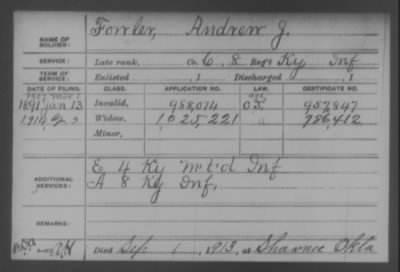 NAME OF SOLDIER: Fowler, Andrew J.
SERVICE: Late rank, Co. C, 8 Reg't Ky Inf
TERM OF SERVICE: Enlisted , 1 Discharged , 1
DATE OF FILING. CLASS. APPLICATION NO. LAW. CERTIFICATE NO.
1891 Jan 13 Invalid, 988,074 957,847
1914 3 Widow, 1025221 786,412
Minor,
ADDITIONAL SERVICES: E 4 Ky Mt'd Inf
A 8 Ky Inf,
REMARKS:
Died Sep 1, 1913, at Shawnee Okla